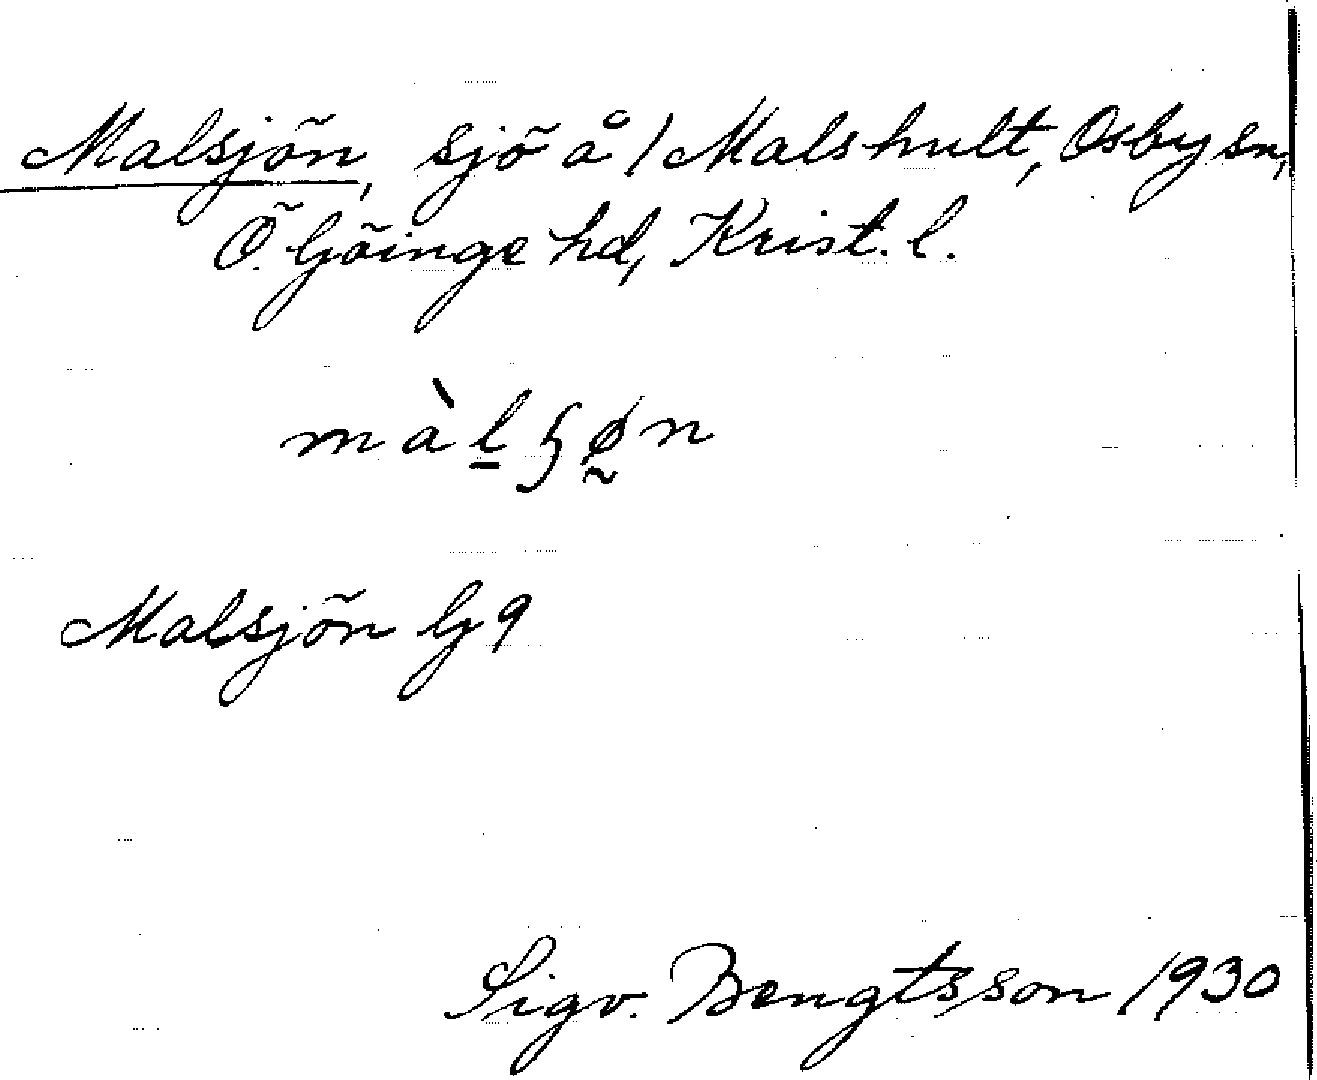 Malsjön, sjö å 1 Malshult, Osby sn,
Ö. Göinge hd, Krist. l.
màl̠ʃø̰n
Malsjön G 9
Sigv. Bengtsson 1930